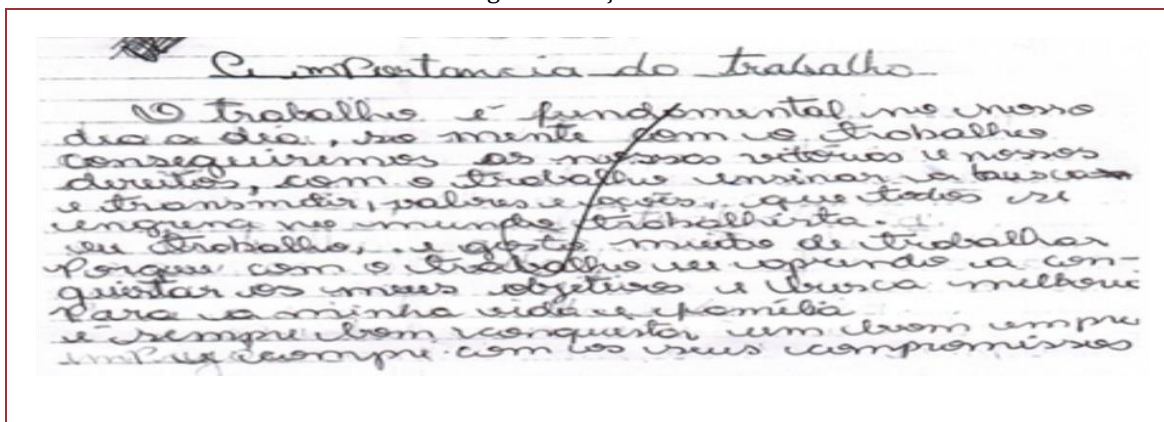 A importancia do trabalho
O trabalho é fundamental no nosso
dia a dia, so mente com o trabalho
conseguiremos as nossas vitórias e nossos
direitos, com o trabalho ensinar a busca
e transmitir, valores e ações, que todos se
engrena no mundo trabalhista.
eu trabalho, e gosto muito de trabalhar
Porque com o trabalho eu aprendo a con-
quistar os meus objetivos e busca melhoria
Para a minha vida e família
é sempre bom conquistar um bom empre
compre com os seus compromissos